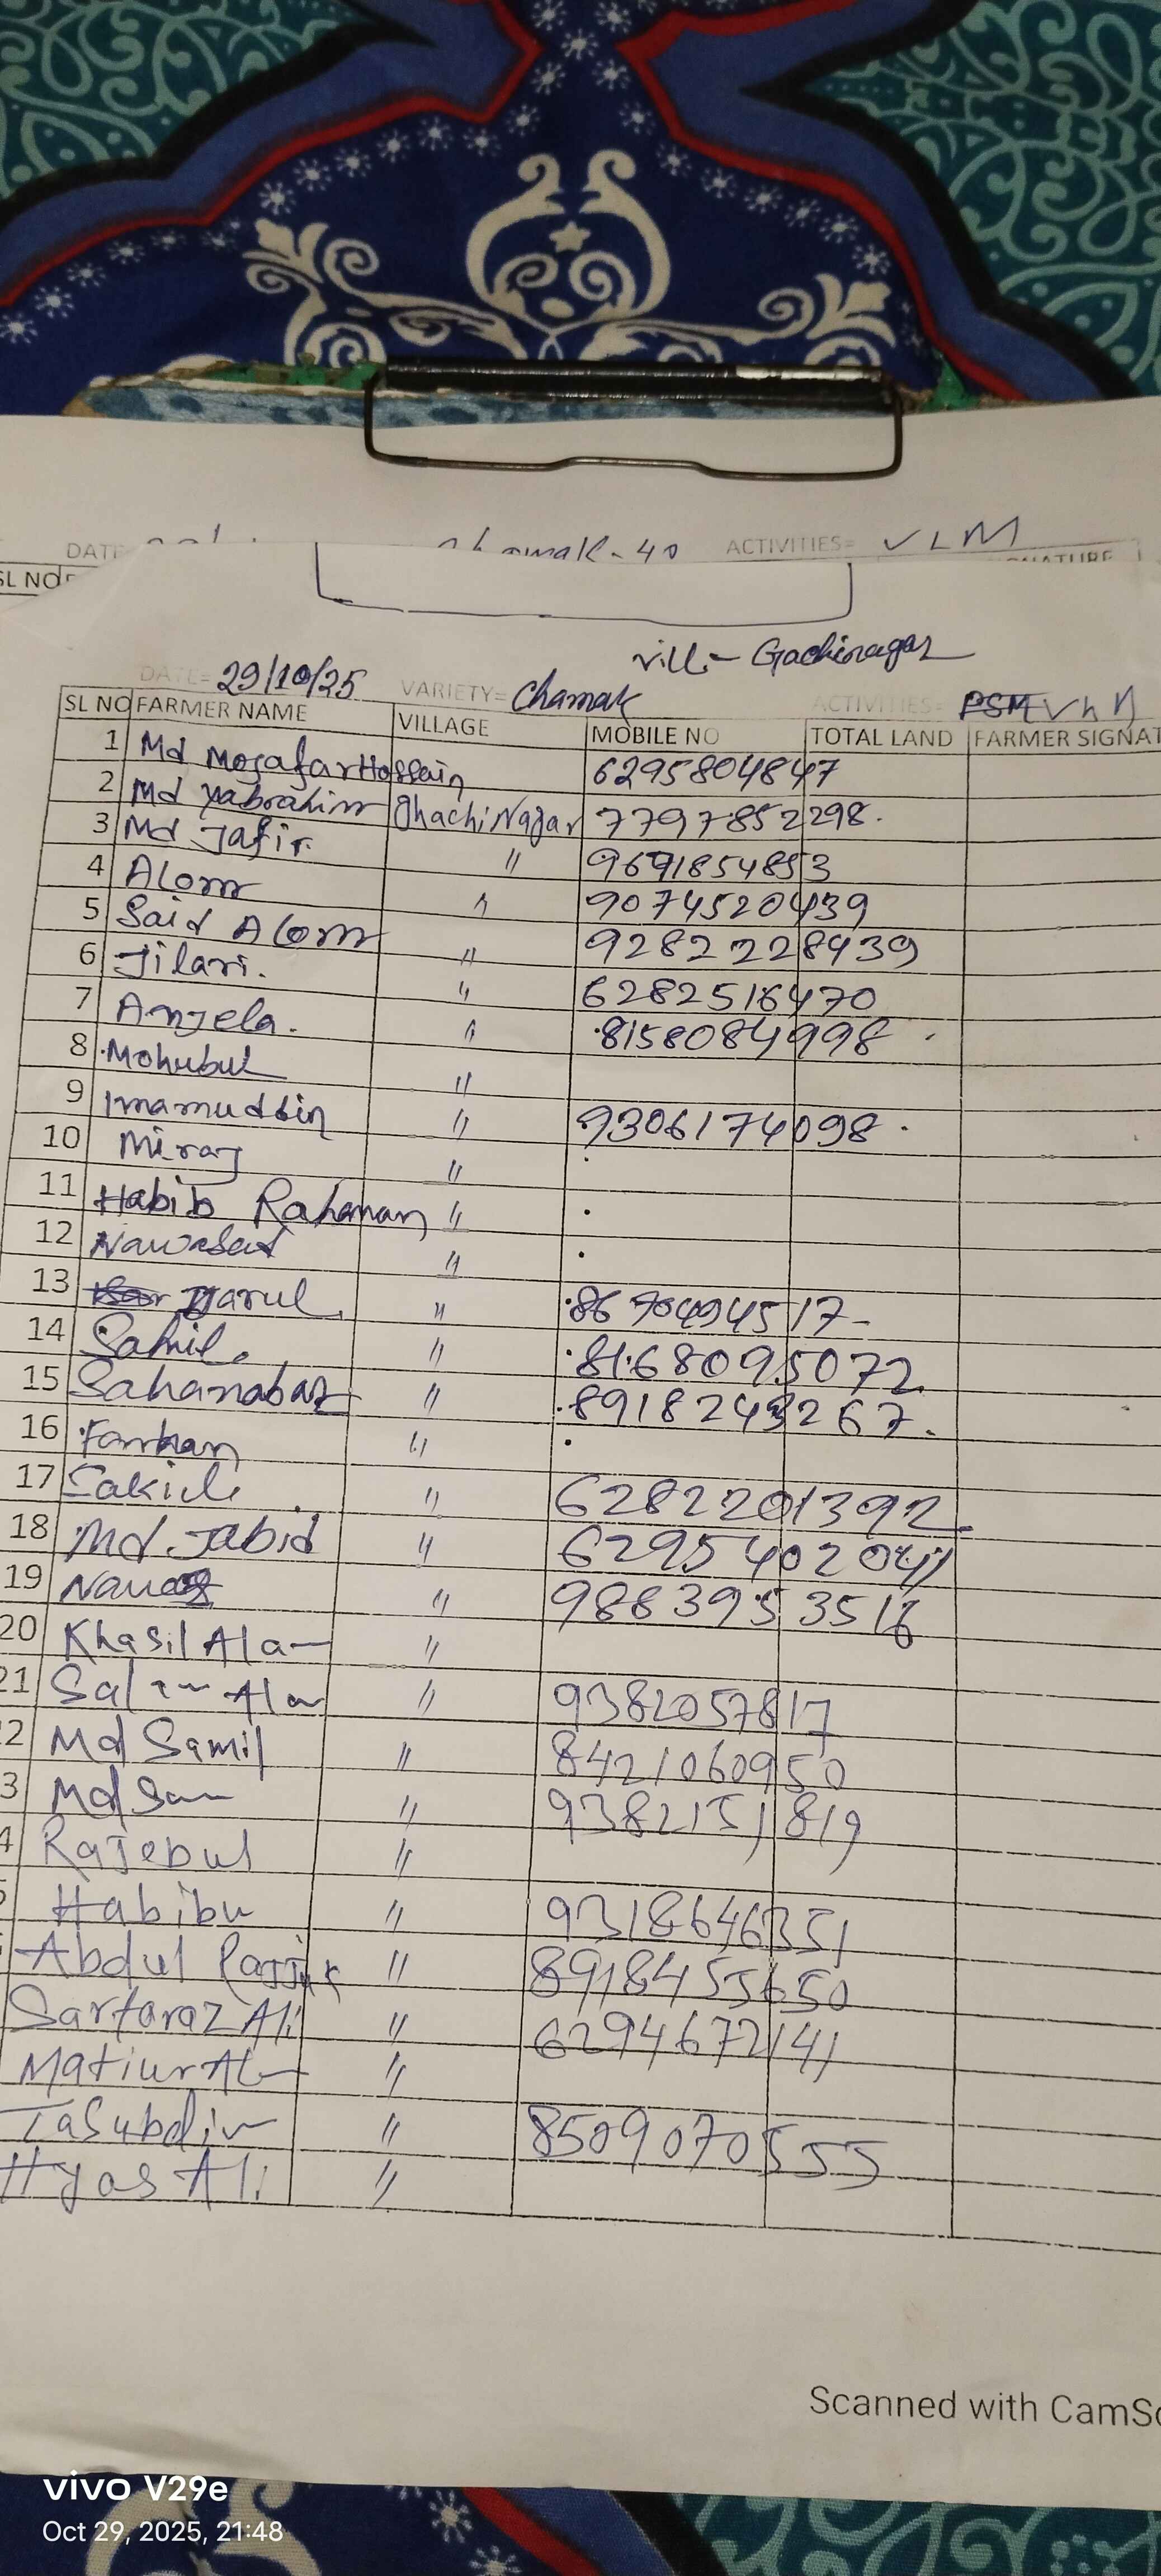 DATE ACTIVITIES= VLM
SL NO
Vill:- Gachinagar
DATE= 29/10/25 VARIETY= Chamak ACTIVITIES=
SL NO FARMER NAME VILLAGE MOBILE NO TOTAL LAND FARMER SIGNAT
1 Md Mozafar Hossain 6295804847
2 Md Yabrahim GhachiNagar 7797852298.
3 Md Jafir. " 9691854853
4 Alom " 9074520439
5 Said Alom " 9282228439
6 Jilari. " 6282516470
7 Anjela. " .8158084998
8 .Mohubul "
9 Imamuddin " .9306174098.
10 Miraj " .
11 Habib Rahaman " .
12 Nawsad " .
13 Jarul. " .8670494517-
14 Sahil. " .8168095072
15 Sahanabaz " .8918243267.
16 .Farhan " .
17 Sakil " 6282201392
18 Md Jabid " 62954020
19 " 98839535
20 Khasil Ala "
21 Salam Alam " 9382057817
2 Md Samil " 8421060950
3 Md " 9382151819
4 Rajebul "
5 Habibu " 9318646351
Abdul Rajjak " 8918455650
Sartaraz Ali " 6294672141
Matiur "
Tasubdin " 8509070555
Ilyas Ali "
Scanned with CamSc
vivo V29e
Oct 29, 2025, 21:48